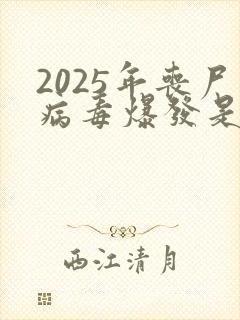 2025年丧尸
病毒爆發是
西江清月